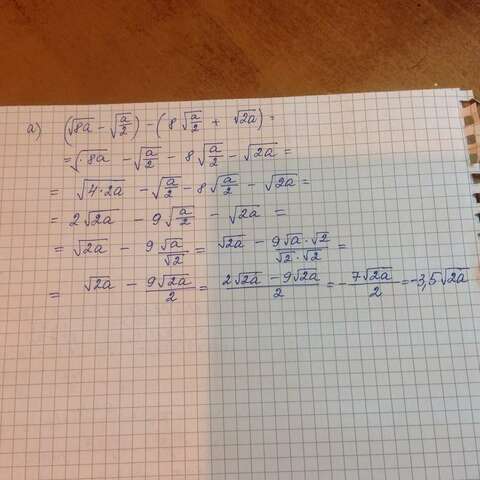 а) (√8a - √a/2) - (8√a/2 + √2a) =
= √8a - √a/2 - 8√a/2 - √2a =
= √4·2a - √a/2 - 8√a/2 - √2a =
= 2√2a - 9√a/2 - √2a =
= √2a - 9√a/√2 = √2a - 9√a·√2/√2·√2 =
= √2a - 9√2a/2 = 2√2a - 9√2a/2 = - 7√2a/2 = -3,5√2a